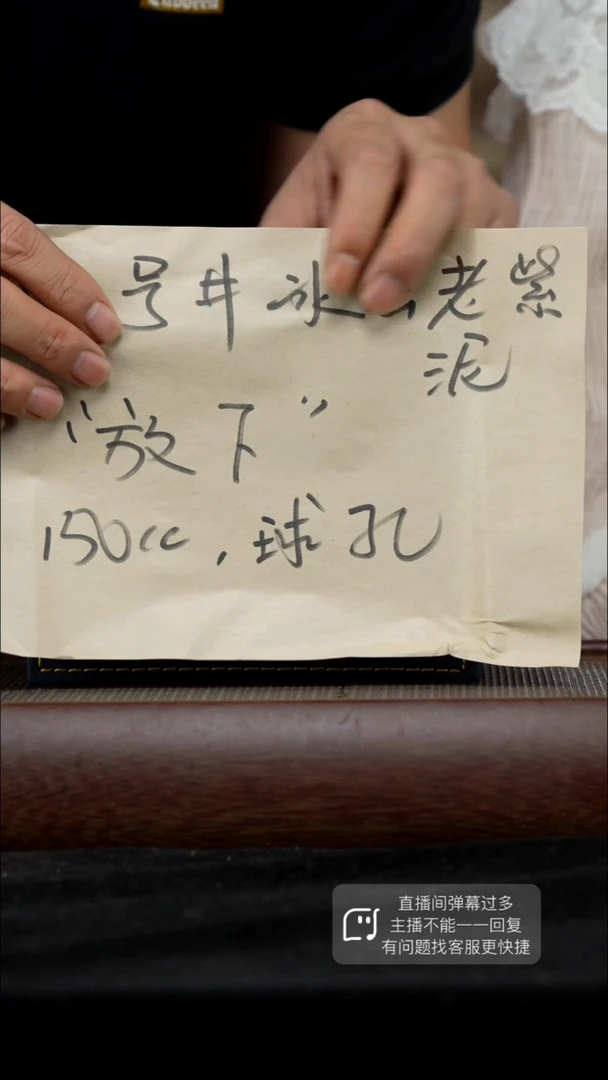 号井 冰 老紫
泥
“放下”
150cc，球孔
直播间弹幕过多
主播不能一一回复
有问题找客服更快捷